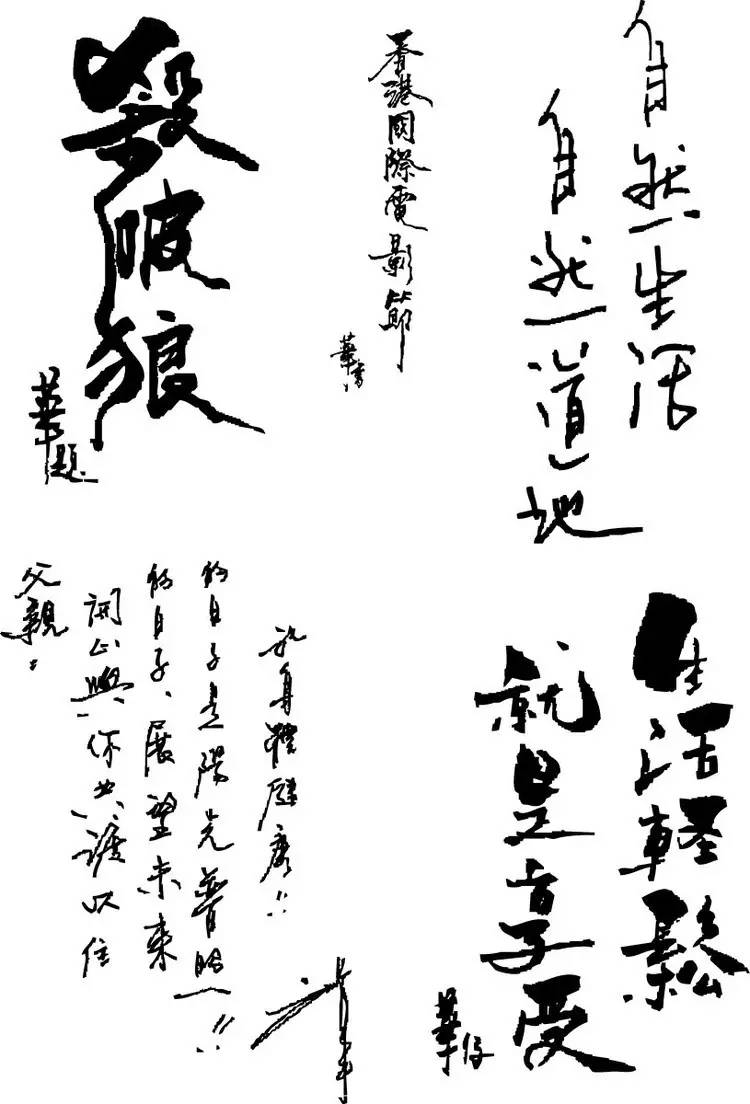 殺破狼
華題
香港國際電影節
華書
自然生活
自然道地
父親：
開心與你共渡以住
的日子、展望未來
的日子是陽光普照！！
祝身體健康！！
華
生活軽鬆
就是享受
華仔